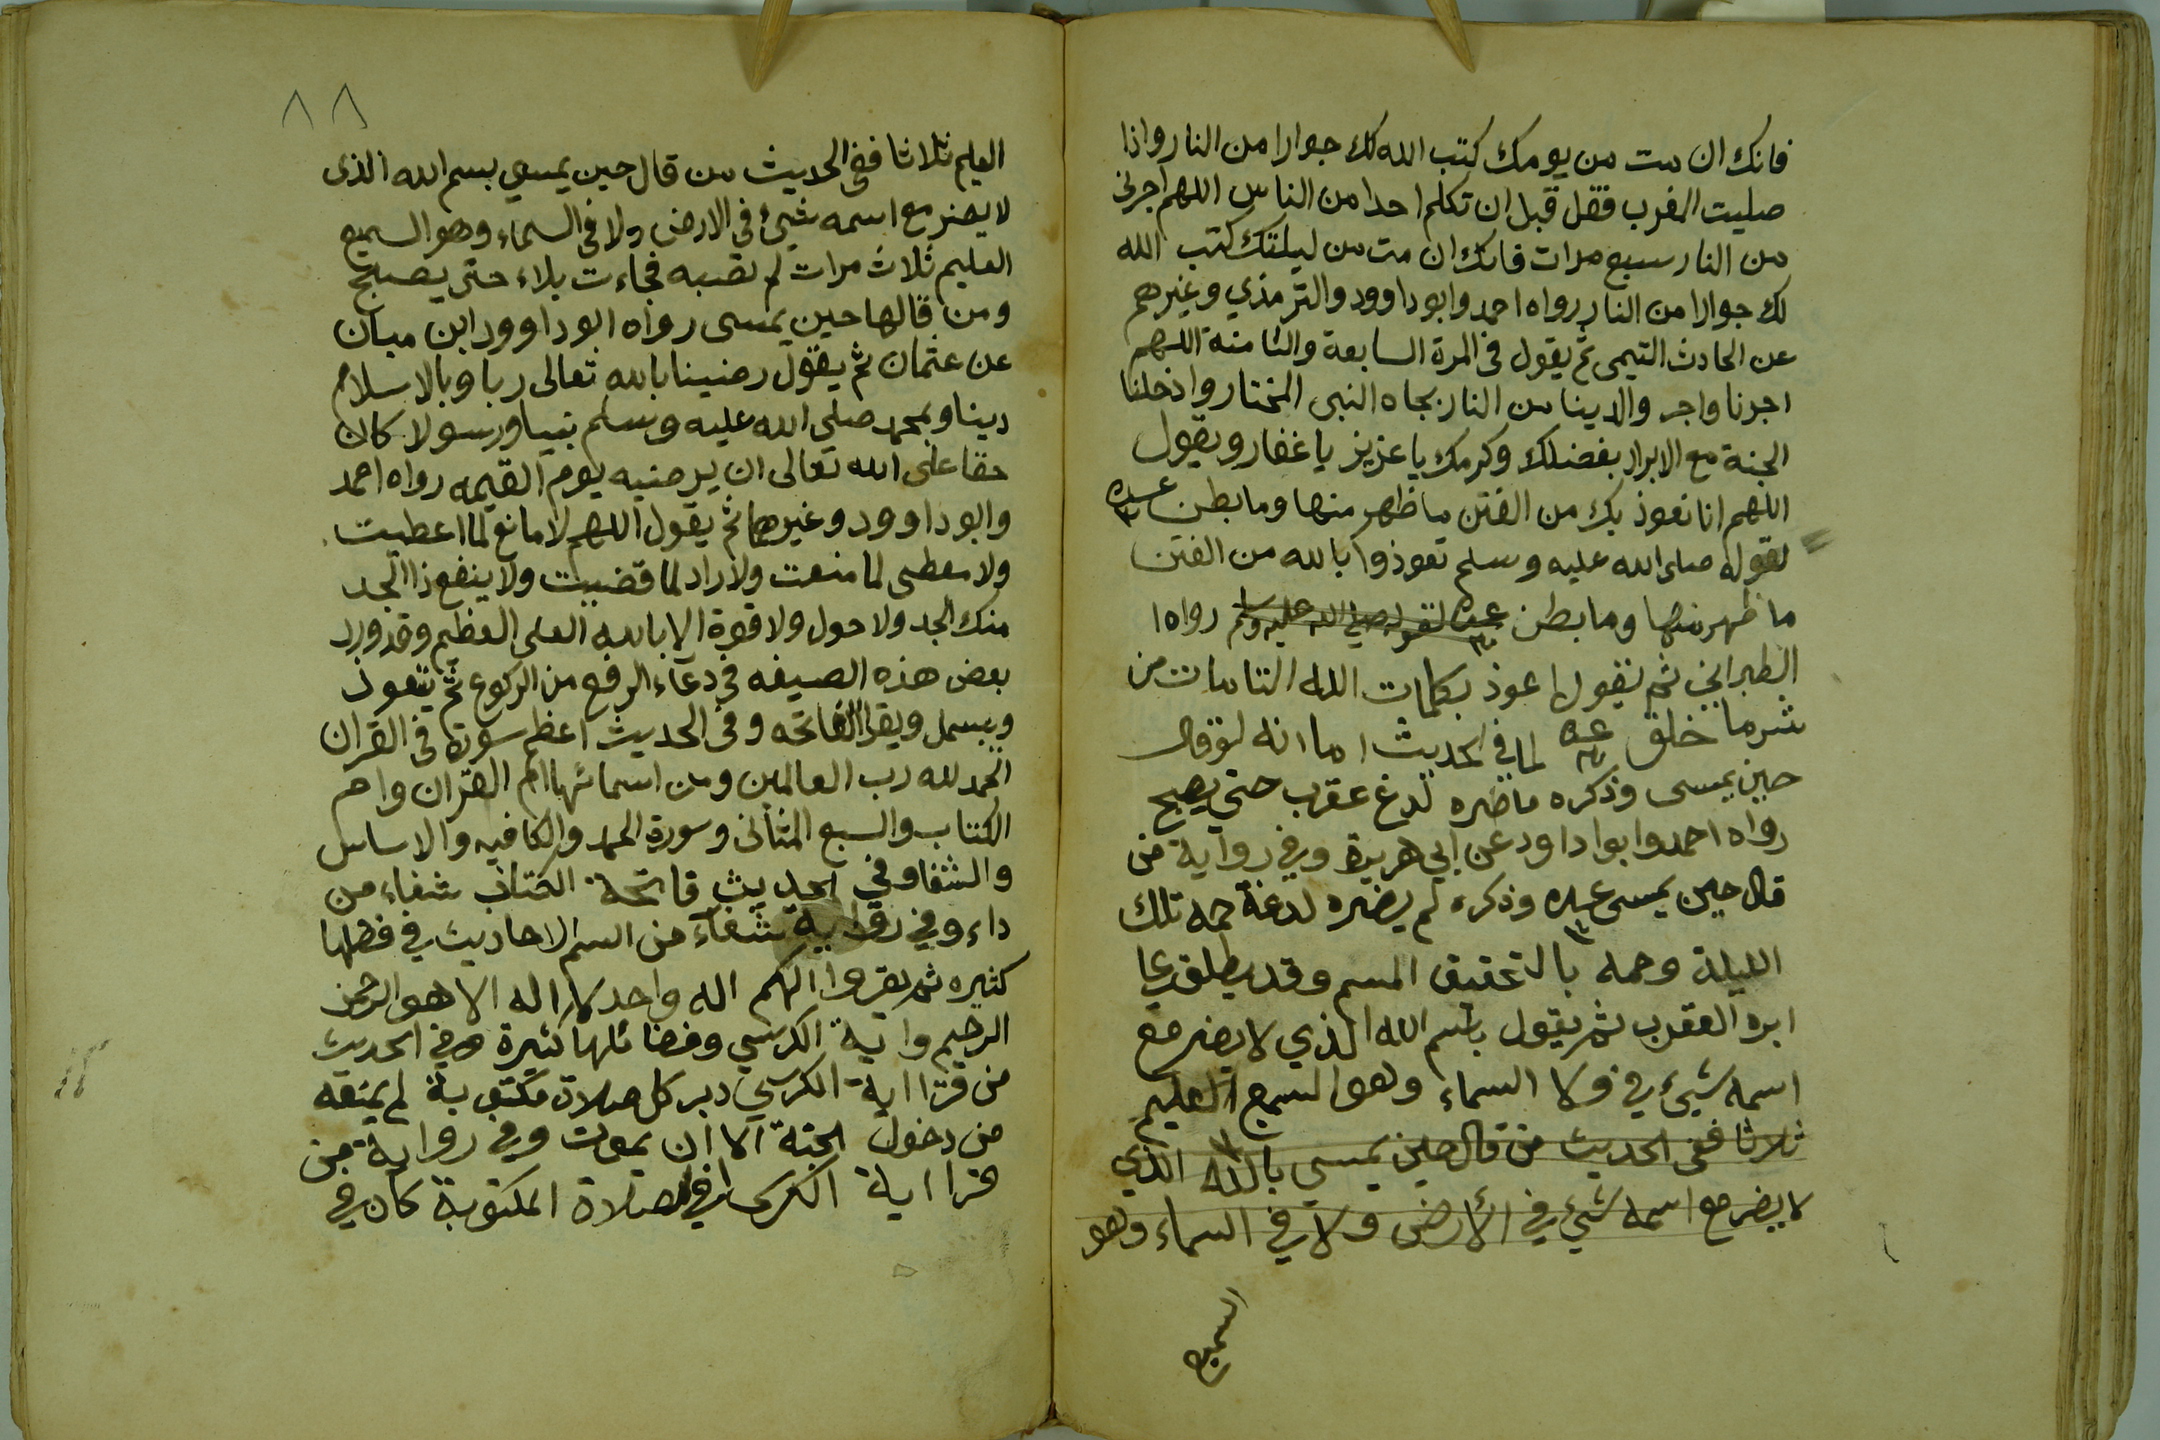 فانك ان مت من يومك كتب الله لك جوارا من النار واذا
صليت المغرب فقل قبل ان تكلم احدا من الناس اللهم اجرني
من النار سبع مرات فانك ان مت من ليلتك كتب الله
لك جوارا من النار رواه احمد وابو داوود والترمذي وغيرهم
عن الحادث التيمى ثم يقول فى المرة السابعة والثامنة اللهم
اجرنا واجر والدينا من النار بجاه النبى المختار وادخلنا
الجنة مع الابرار بفضلك وكرمك يا عزيز يا غفار ويقول
اللهم انا نعوذ بك من الفتن ما ظهر منها وما بطن عده ٣
لقوله صلى الله عليه وسلم تعوذوا بالله من الفتن
ما ظهر منها وما بطن عده ٣ لقوله صلى الله عليه وسلم رواه ا
الطبراني ثم نقول اعوذ بكلمات الله التامات من
شر ما خلق عده ٣ لما في الحديث اما انه لو قال
حين يمسى وذكره ما ضره لدغ عقرب حتى يصبح
رواه احمد وابوا داود عن ابي هريرة وفي رواية من
قال حين يمسى عده ٣ وذكره لم يضره لدغة حمه تلك
الليلة وحمه بالتخفيف السم وقد يطلق علي
ابره العقرب ثم يقول بسم الله الذي لا يضر مع
اسمه شيئ في ولا السماء وهو السميع العليم
ثلاثا ففى الحديث من قال حين يمسي بالله الذي
لا يضر مع اسمه شيئ في الأرض ولا في السماء وهو
السميع
٨٨
العليم ثلاثا ففى الحديث من قال حين يمسي بسم الله الذى
لا يضر مع اسمه شيئ فى الارض ولا فى السماء وهو السميع
العليم ثلاث مرات لم تصبه فجاءت بلاء حتى يصبح
ومن قالها حين يمسى رواه ابو داوود ابن مبان
عن عثمان ثم يقول رضينا بالله تعالى ربا وبالاسلام
دينا وبمحمد صلى الله عليه وسلم نبيا ورسولا كان
حقا على الله تعالى ان يرضيه يوم القيمه رواه احمد
وابو داوود وغيرهما ثم يقول اللهم لا مانع لما اعطيت
ولا معطى لما منعت ولا راد لما قضيت ولا ينفع ذا الجد
منك الجد ولا حول ولا قوة الا بالله العلى العظيم وقد ورد
بعض هذه الصيغه في دعاء الرفع من الركوع ثم يتعوذ
ويبسمل ويقرا الفاتحه وفى الحديث اعظم سورة فى القران
الحمد لله رب العالمين ومن اسمائها ام القران وام
الكتاب والسبع المثانى وسورة الحمد والكافيه والاساس
والشفا وفي الحديث فاتحة الكتاب شفاء من
داء وفي رواية شفاء من السم الاحاديث في فضلها
كثيره ثم يقروا الهكم اله واحد لا اله الا هو الرحمن
الرحيم واية الكرسي وفضائلها كثيرة وفي الحديث
من قرا اية الكرسي دبر كل صلاة مكتوبة لم يمنعه
من دخول الجنة الا ان يموت وفي رواية من
قرا اية الكرسى في الصلاة المكتوبة كان في